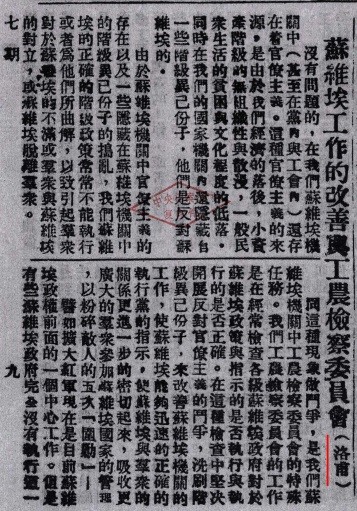 蘇維埃工作的改善與工農檢察委員會(洛甫)
沒有問題的,在我們蘇維埃機
關中(甚至在黨內與工會內)還存
在着官僚主義。這種官僚主義的來
源,是由於我們經濟的落後,小資
產階級的無組織性與散漫,一般民
衆生活的貧困與文化程度的低落。
同時在我們的國家機關內還隱藏着
一些階級異己份子,他們是反對蘇
維埃的。
由於蘇維埃機關中官僚主義的
存在以及一些隱藏在蘇維埃機關
的階級異己份子的搗亂,我們蘇維
埃的正確的階級政策常常不能執行
或者為他們所曲解,以致引起羣衆
對於蘇維埃的不滿或羣衆與蘇維埃
的對立,或蘇維埃脫離羣衆。
七期
同這種現象做鬥爭,是我們蘇
維埃機關中工農檢察委員會的特殊
任務。我們工農檢察委員會的工作
是在經常檢查各級蘇維埃政府對於
蘇維埃政策與指示的是否執行與執
行的是否正確。在這種檢查中堅決
開展反對官僚主義的鬥爭,洗刷階
級異己份子,來改善蘇維埃機關的
工作,使蘇維埃能夠迅速的正確的
執行黨的指示,使蘇維埃與羣衆的
關係更進一步的密切起來,吸收更
廣大的羣衆參加蘇維埃國家的管理
,以粉碎敵人的五次「圍剿」—
譬如擴大紅軍現在是目前蘇維
埃政權前面的一個中心工作。但是
有些蘇維埃政府完全沒有執行這一
九